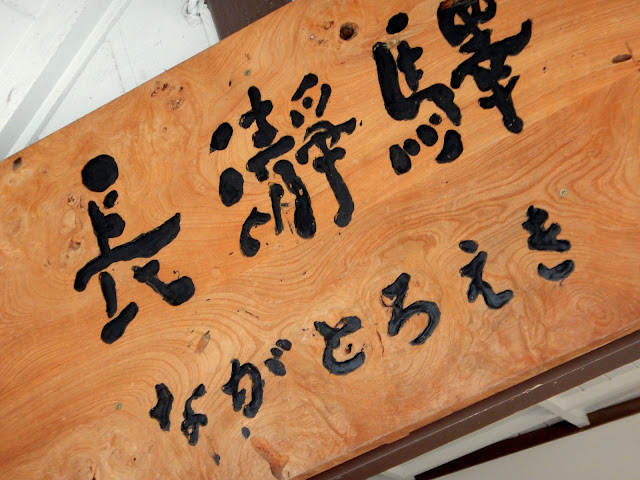 長瀞驛
ながとろえき